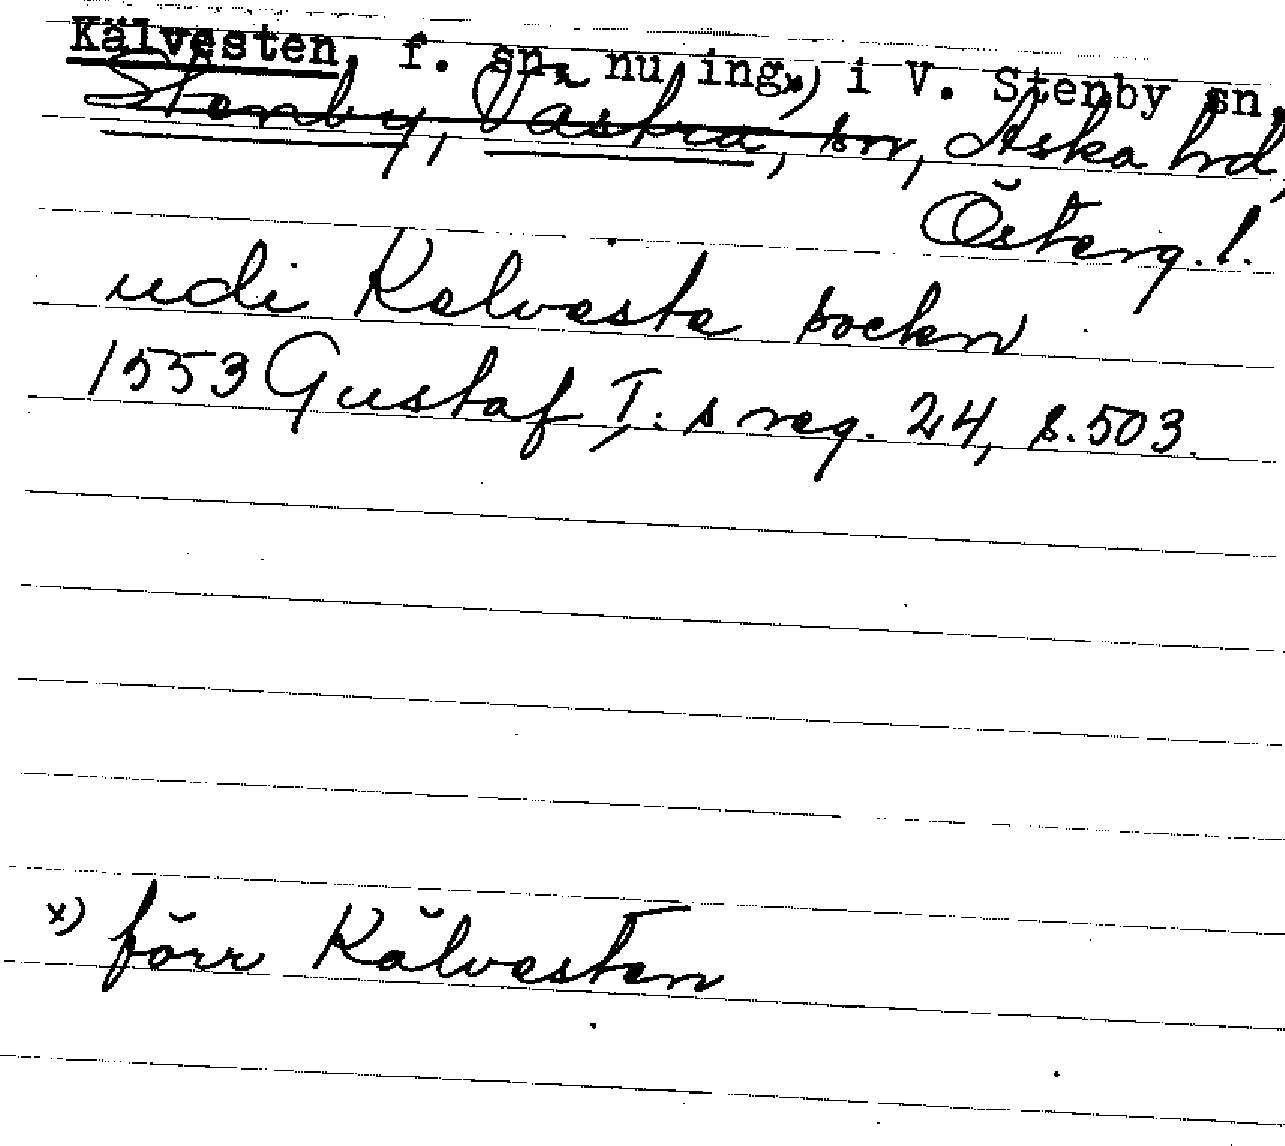 Kälvesten, f. sn, nu ing.x) i V. Stenby sn,
Stenby, Västra, sn, Aska hrd,
Österg. l.
udi Kelvesta sockn
1553 Gustaf I:s reg. 24, s. 503.
x) förr Kälvesten